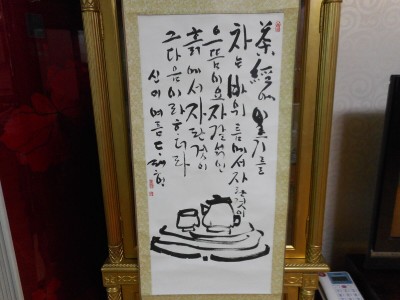 茶經에 보기를
차는 바위 틈에서 자란 것이
으뜸이요 자갈 섞인
흙에서 자란 것이
그 다음이라 하더라